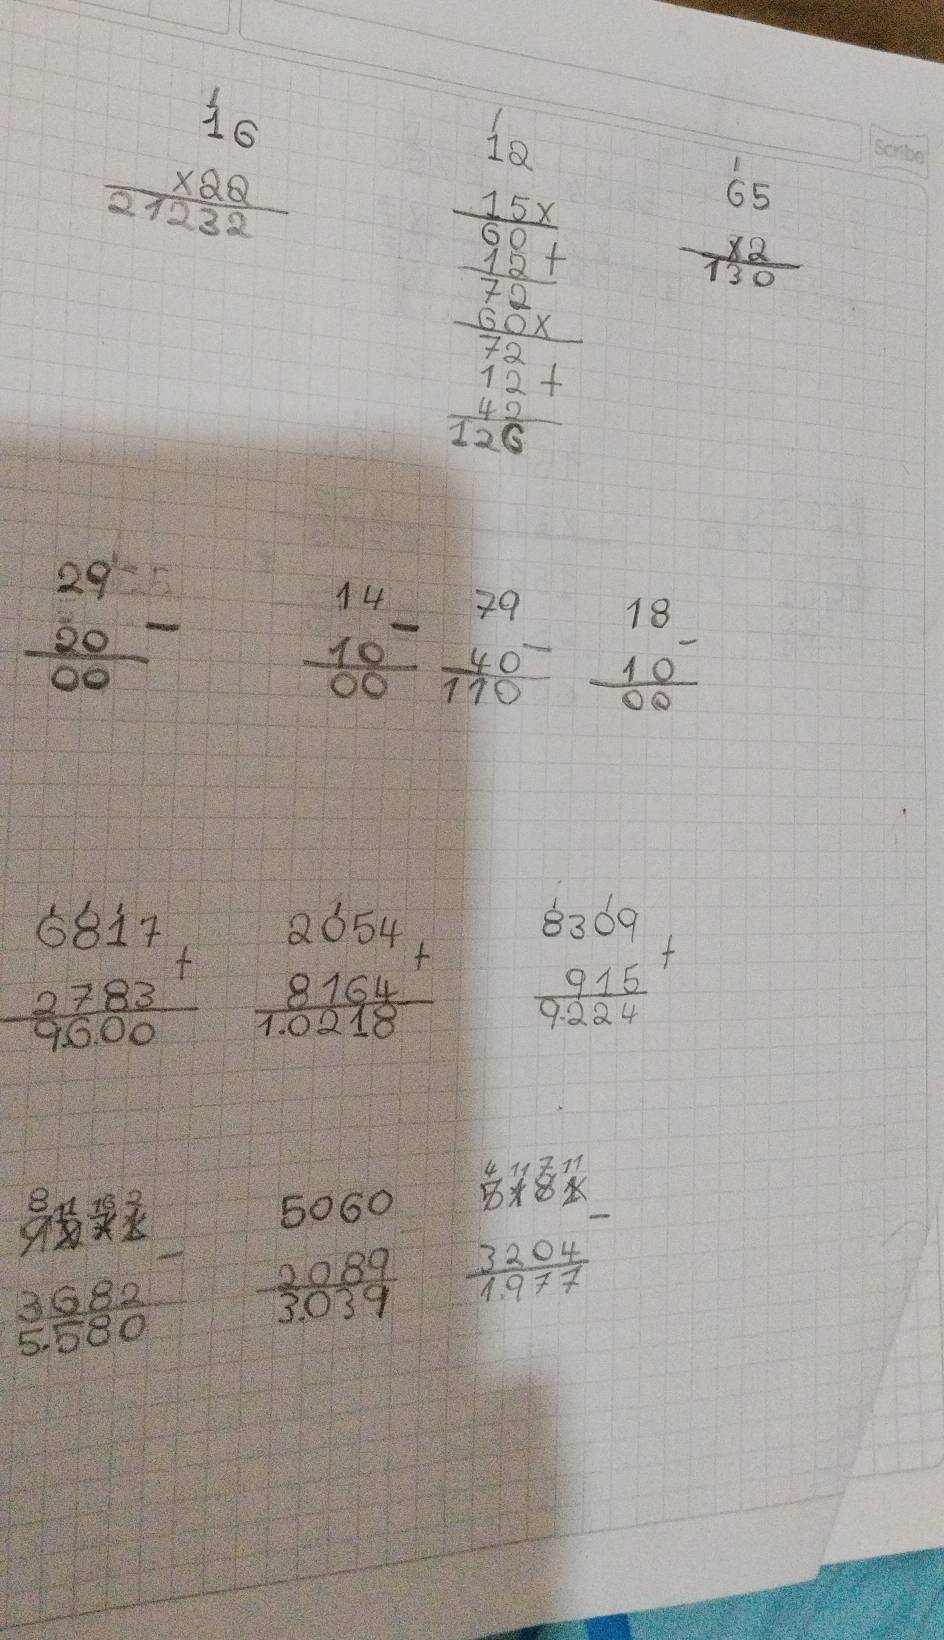 Scribe
1
16
x22
21232
1
12
15x
60
12+
72
60x
72
12+
42
126
1
65
x2
130
29
20 -
00
14
10 -
00
79
40 -
110
18
10 -
00
6817
2783 +
9.600
2054
8164 +
1.0218
8309
915 +
9.224
3682 -
5.580
5060
2089
3.039
4 11 7 11
5181
3204 -
1.977